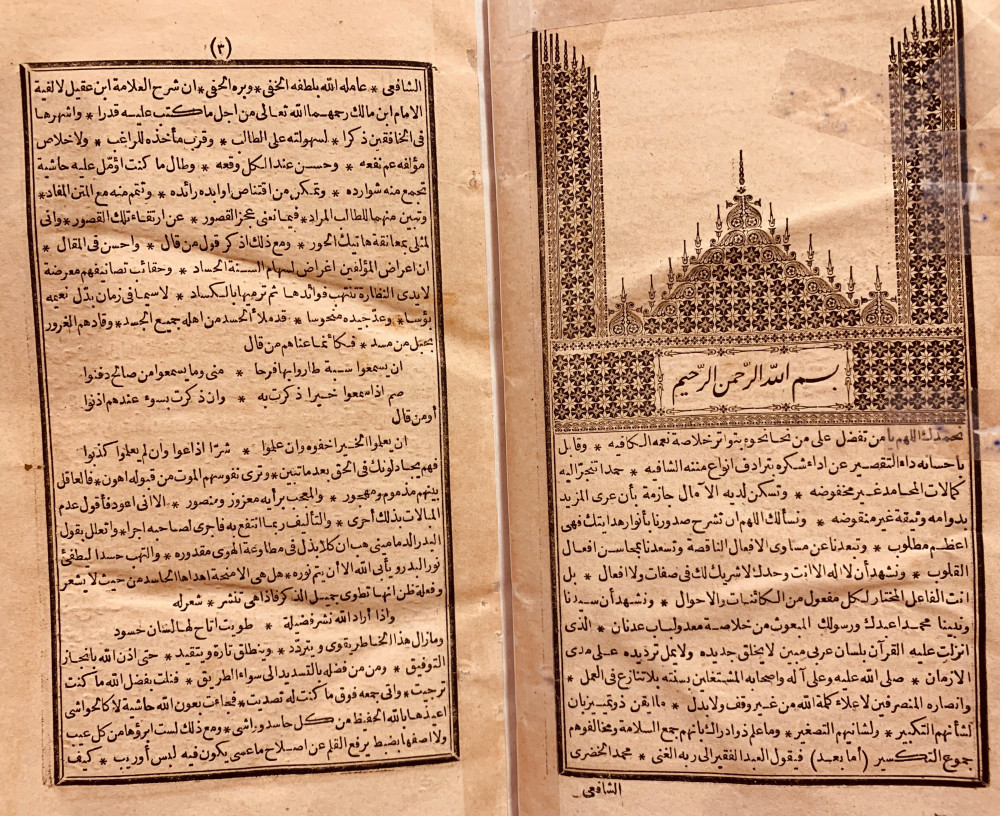 بسم الله الرحمن الرحيم
نحمدك اللهم يا من تفضل على من نحا نحوه بتواتر خلاصة نعمه الكافيه * وقابل
باحسانه داء التقصير عن اداء شكره بترادف انواع مننه الشافيه * حمدا تنجر اليه
كمالات المحامد غير مخفوضه * وتسكن لديه الآمال جازمة بأن عرى المزيد
بدوامه وثيقة غير منقوضه * ونسألك اللهم ان تشرح صدورنا بأنوار هدايتك فهى
اعظم مطلوب * وتبعدنا عن مساوى الافعال الناقصة وتسعدنا بمحاسن افعال
القلوب * ونشهد أن لا اله الا انت وحدك لا شريك لك فى صفات ولا افعال * بل
انت الفاعل المختار لكل مفعول من الكائنات والاحوال * ونشهد أن سيدنا
ونبينا محمدا عبدك ورسولك المبعوث من خلاصة معد ولباب عدنان * الذى
انزلت عليه القرآن بلسان عربى مبين لا يخلق جديده ولا يمل ترديده على مدى
الازمان * صلى الله عليه وعلى آله واصحابه المشتغلين بسنته بلا تنازع فى العمل *
وانصاره المنصرفين لاعلاء كلمة الله من غير وقف ولا بدل * ما ايقن ذو تمييز بان
لشأنهم التكبير * ولشانيهم التصغير * وما علم ذو ادراك بأنهم جمع السلامة ومخالفوهم
جموع التكسير (أما بعد) فيقول العبد الفقير الى ربه الغنى * محمد الخضرى
الشافعى
(٣)
الشافعى * عامله الله بلطفه الخفى * وبره الحفى * ان شرح العلامة ابن عقيل لالفية
الامام ابن مالك رحمهما الله تعالى من اجل ما كتب عليه قدرا * واشهرها
فى الخافقين ذكرا * لسهولته على الطالب * وقرب مأخذه للراغب * ولاخلاص
مؤلفه عم نفعه * وحسن عند الكل وقعه * وطال ما كنت اؤمل عليه حاشية
تجمع منه شوارده * وتمكن من اقتناص اوابده رائده * وتتم منه مع المتن المفاد *
وتبين منهما للطالب المراد * فيمانعنى عجز القصور * عن ارتقاء تلك القصور * وانى
لمثلى بمعانقة هاتيك الحور * ومع ذلك اذكر قول من قال * واحسن فى المقال *
ان اعراض المؤلفين اغراض لسهام السنة الحساد * وحقائب تصانيفهم معرضة
لايدى النظارة تنتهب فوائدها ثم ترميها بالكساد * لاسيما فى زمان بدل نعيمه
بؤسا * وعد جيده منحوسا * قد ملأ الحسد من اهله جميع الجسد * وقادهم الغرور
بحبل من مسد * فكأنما عناهم من قال
ان يسمعوا سبة طاروا بها فرحا * منى وما يسمعوا من صالح دفنوا
صم اذا سمعوا خيرا ذكرت به * وان ذكرت بسوء عندهم اذنوا
أو من قال
ان يعلموا الخير اخفوه وان علموا * شرا اذاعوا وان لم يعلموا كذبوا
فهم يجادلونك فى الحق بعد ما تبين * وترى نفوسهم الموت من قبوله اهون * فالعاقل
بينهم مذموم ومهجور * والمعجب برأيه معزوز ومنصور * الا انى اعود فأقول عدم
المبالات بذلك أحرى * والتأليف ربما انتفع به فاجرى لصاحبه اجرا * واتعلل بقول
البدر الدمامينى هب ان كلا بذل فى مطاوعة الهوى مقدوره * والتهب حسدا ليطفئ
نور البدر ويأبى الله الا أن يتم نوره * هل هى الا منحة اهداها الحاسد من حيث لا يشعر
وفعلة ظن انها تطوى جميل الذكر فاذا هى تنشر * شعر له
واذا أراد الله نشر فضيلة * طويت اتاح لها لسان حسود
وما زال هذا الخاطر يقوى ويتردد * وينطلق تارة ويتقيد * حتى اذن الله بانجاز
التوفيق * ومن من فضله بالتسديد الى سواء الطريق * فنلت بفضل الله ما كنت
ترجيت * وانى جمعه فوق ما كنت له تصديت * فجاءت بعون الله حاشية لا كالحواشى
اعيذها بالله الحفيظ من كل حاسد وواشى * ومع ذلك لست ابرؤها من كل عيب
ولا اصفها بضبط يرفع القلم عن اصلاح ما عسى يكون فيه لبس أو ريب * كيف